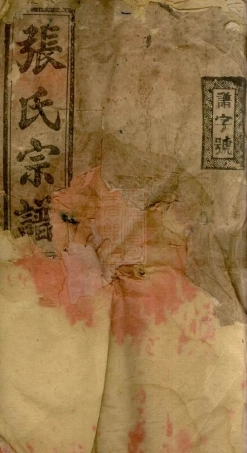 張氏宗譜
字號